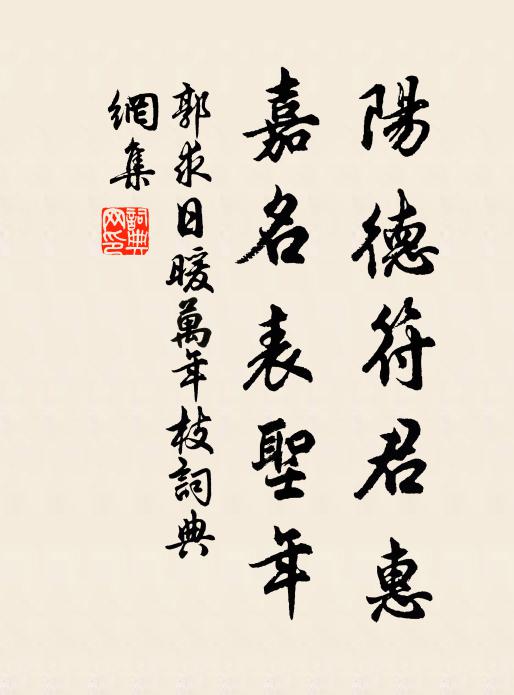 陽德符君惠
嘉名表聖年
郭求日暖萬年枝詞典
網集
詞典
网印